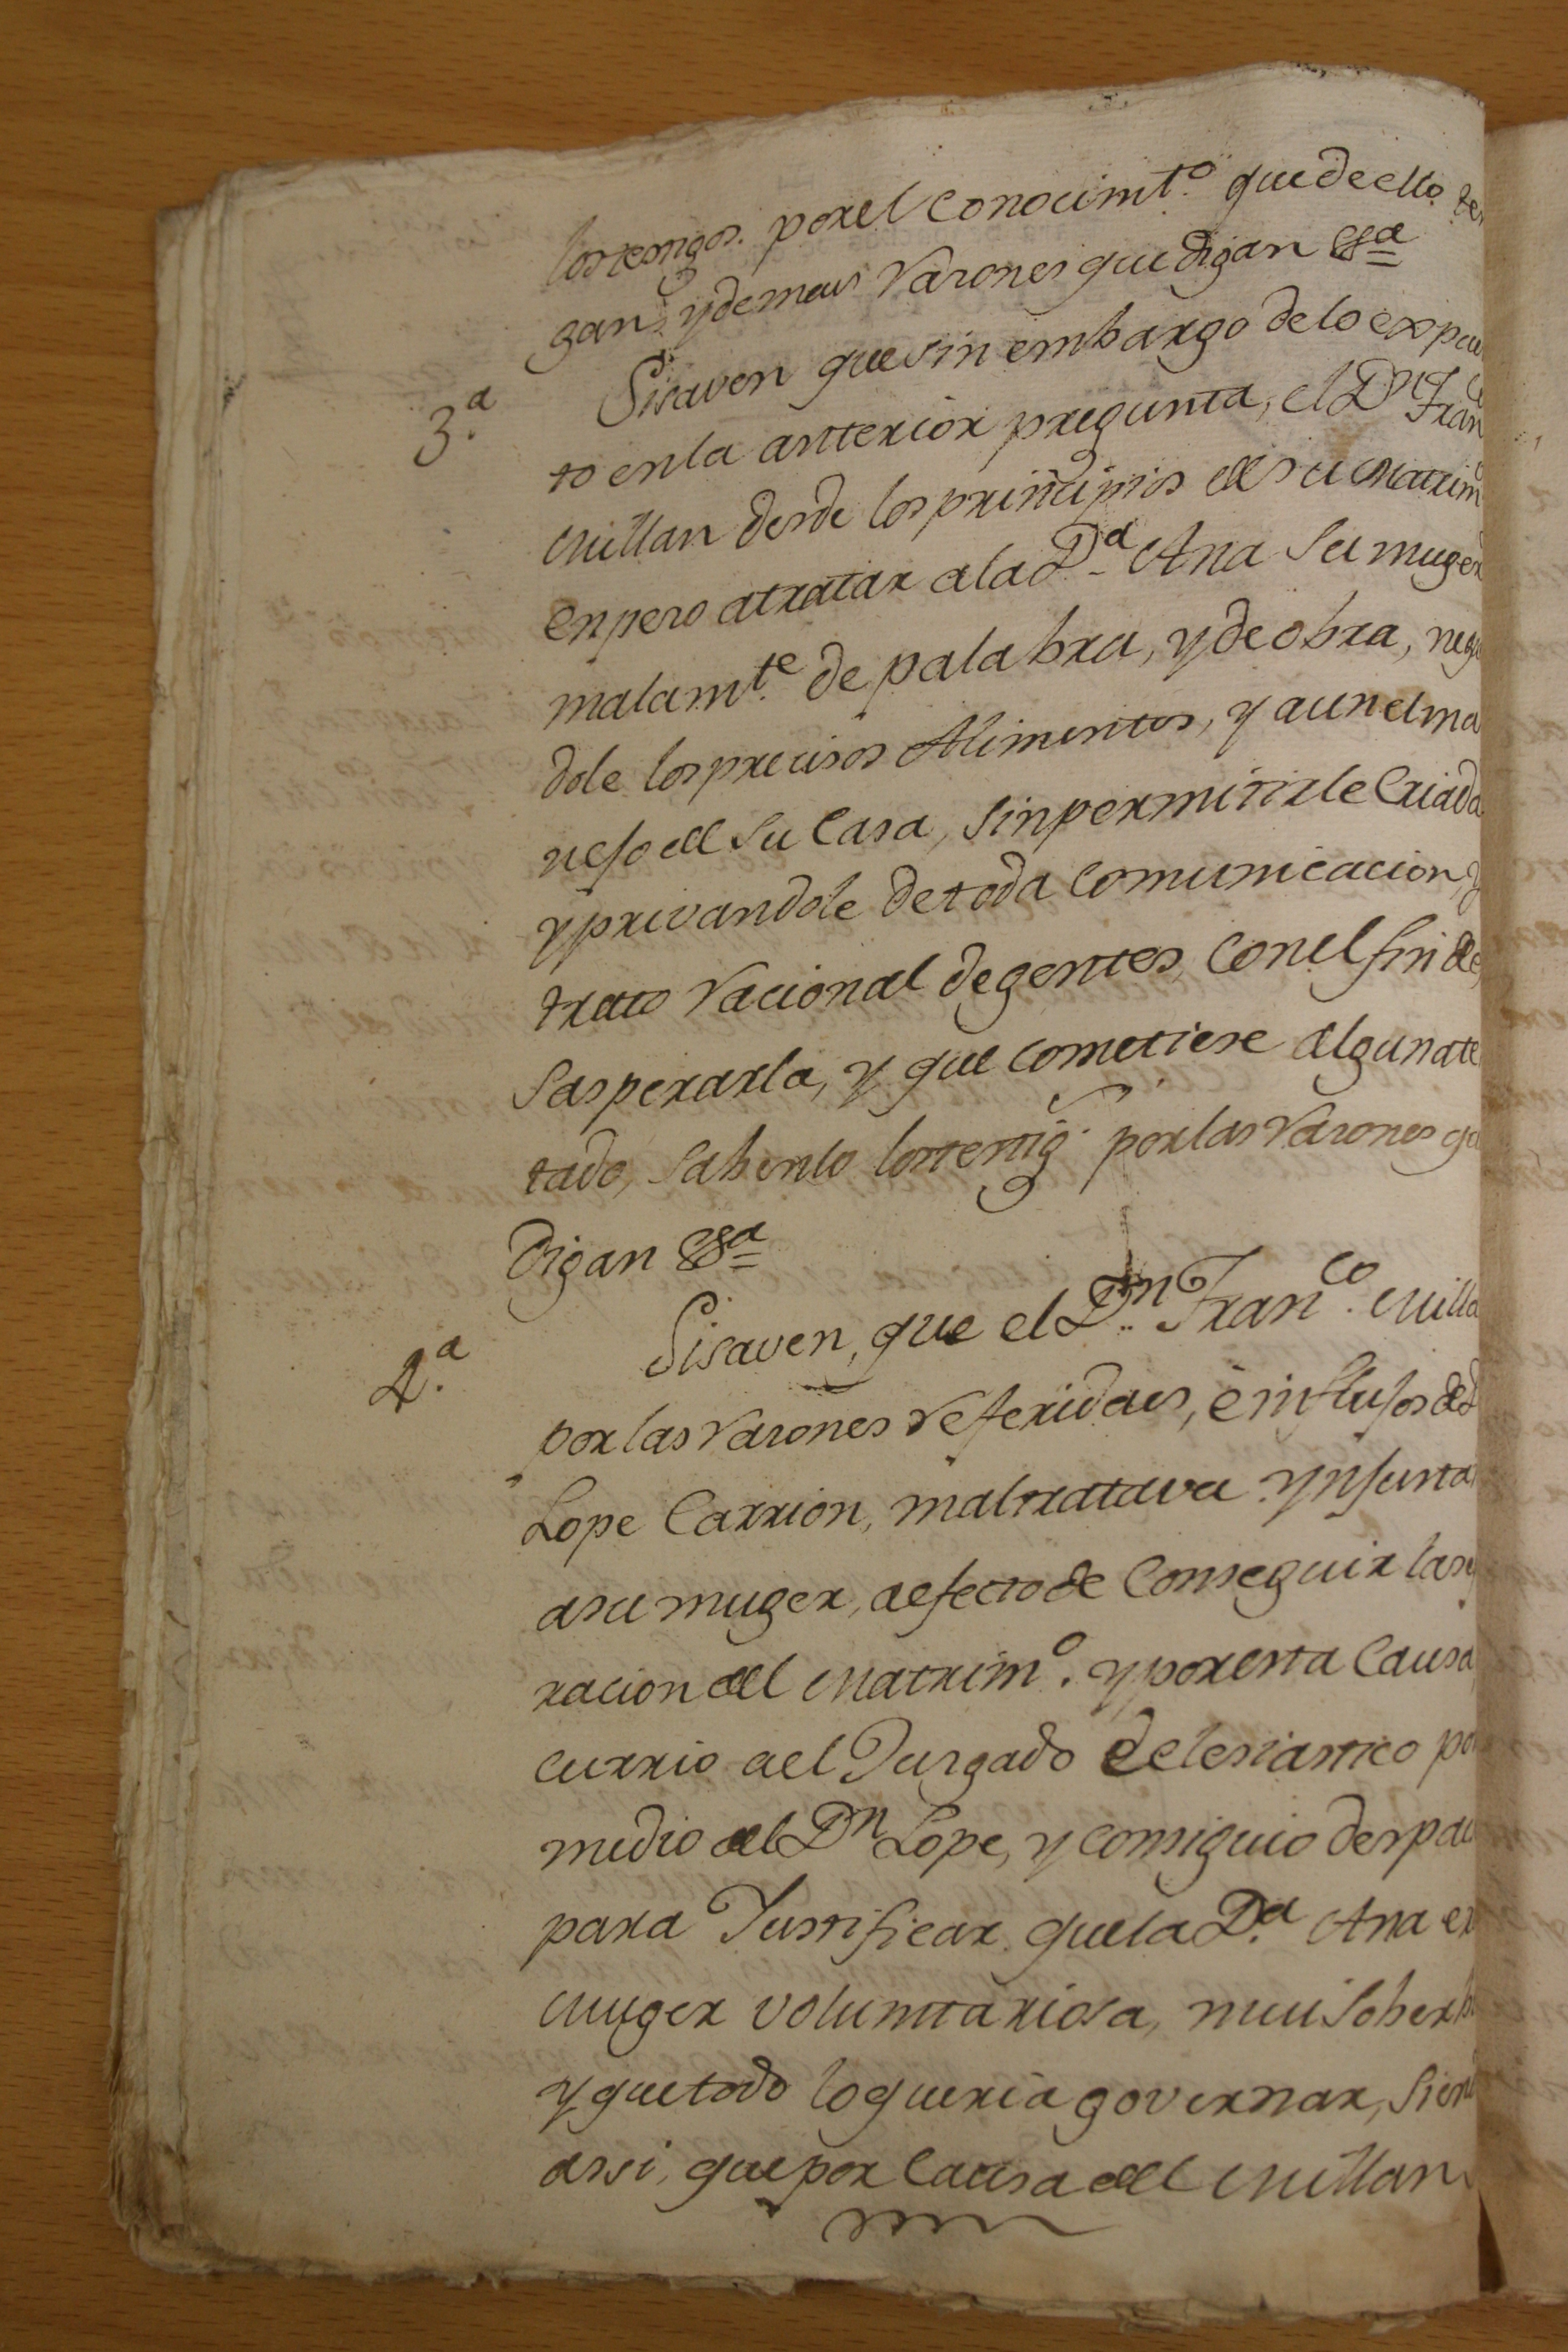 los testigos. por el Conocimt.º que de ello ten
gan, y demas razones que digan &ª
3.ª Si saven que sin embargo de lo expues
to en la anterior pregunta, el Dn Franco
Millan desde los principios de su Matrimº
enpezo a tratar a la D.ª Ana su muger
malamt.e de palabra, y de obra, nega
dole los precisos Alimentos, y aun el ma
nejo del su Casa, sin permitirle Criada
y privandole de toda Comunicacion, y
trato racional de gentes, Con el fin de
sasperarla, y que Cometiese algun ate
tado, sabenlo los testig.s por las razones q
digan &ª
4.ª Si saven, que el D.n Franco. Milla
por las razones referidas, è influjos de D
Lope Carrion, maltratava ynjusta
a su muger, a efecto de Conseguir la se
racion del Matrimº. y por esta Causa,
currio a el Jurgado Eclesiastico po
medio del Dn Lope, y consiguio despac
para Justificar que la D.ª Ana er
Muger voluntariosa, mui soberb
y que todo lo queria governar, siend
assi, que por Causa del Millan